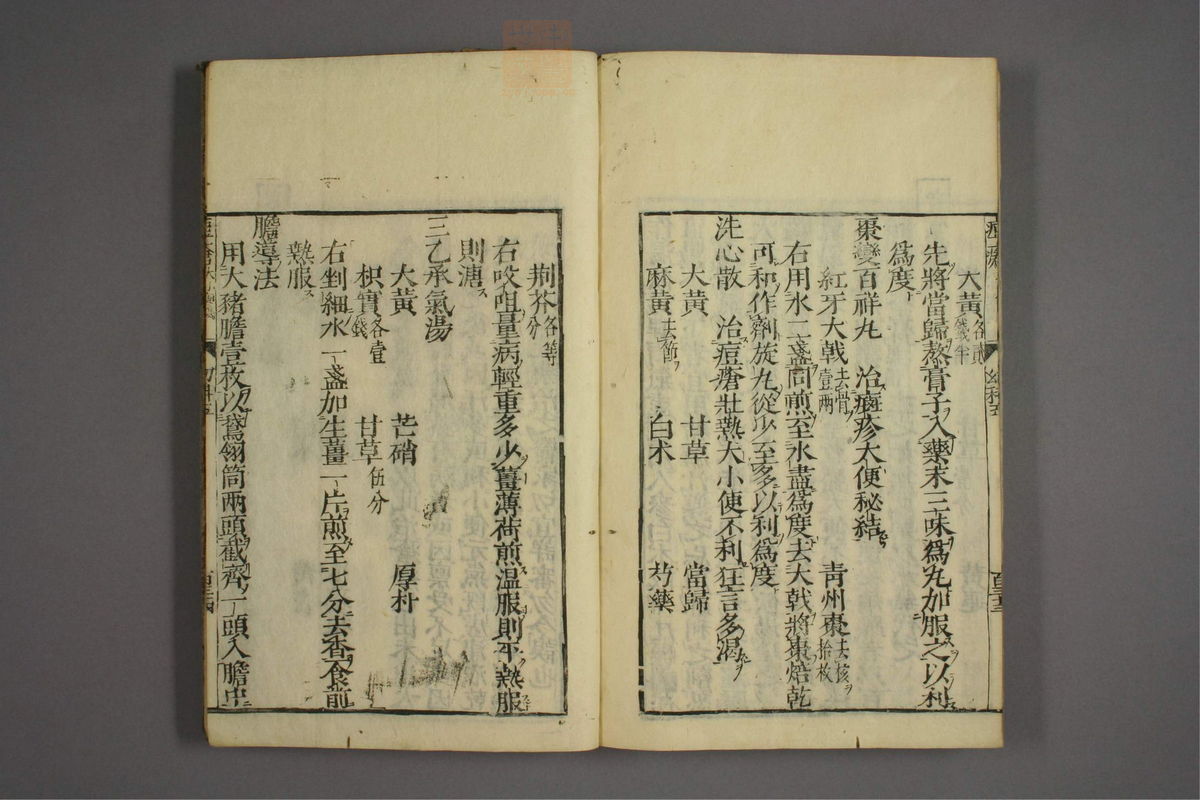 大黃各貳錢半
先將當歸熬膏子入藥末三味爲丸加服之以利
爲度
棗變百祥丸　治瘢疹大便秘結
紅牙大戟去骨壹兩　青州棗去核拾枚
右用水二盞同煎至水盡爲度去大戟將棗焙乾
可和作劑旋丸從少至多以利爲度
洗心散　治痘瘡壯熱大小便不利狂言多渴
大黃　甘草　當歸
麻黃去節　白朮　芍藥
荆芥各等分
右㕮咀量病輕重多少薑薄荷煎溫服則平熱服
則溏
三乙承氣湯
大黃　芒硝　厚朴
枳實各壹錢　甘草伍分
右剉細水一盞加生薑一片煎至七分去香食前
熱服
膽導法
用大豬膽壹枚以鵞翎筒兩頭截齊一頭入膽中